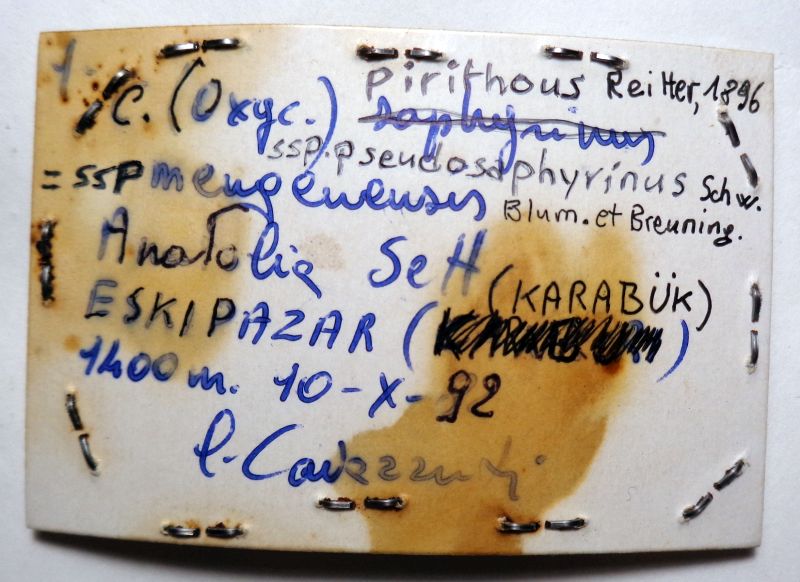 C. (Oxyc.) saphyrinus pirithous Reitter, 1896
ssp. pseudosaphyrinus Schw.
= ssp mengenensis Blum. et Breuning.
Anatolia Sett
ESKIPAZAR (KARABÜK)
1400 m. 10-X-92